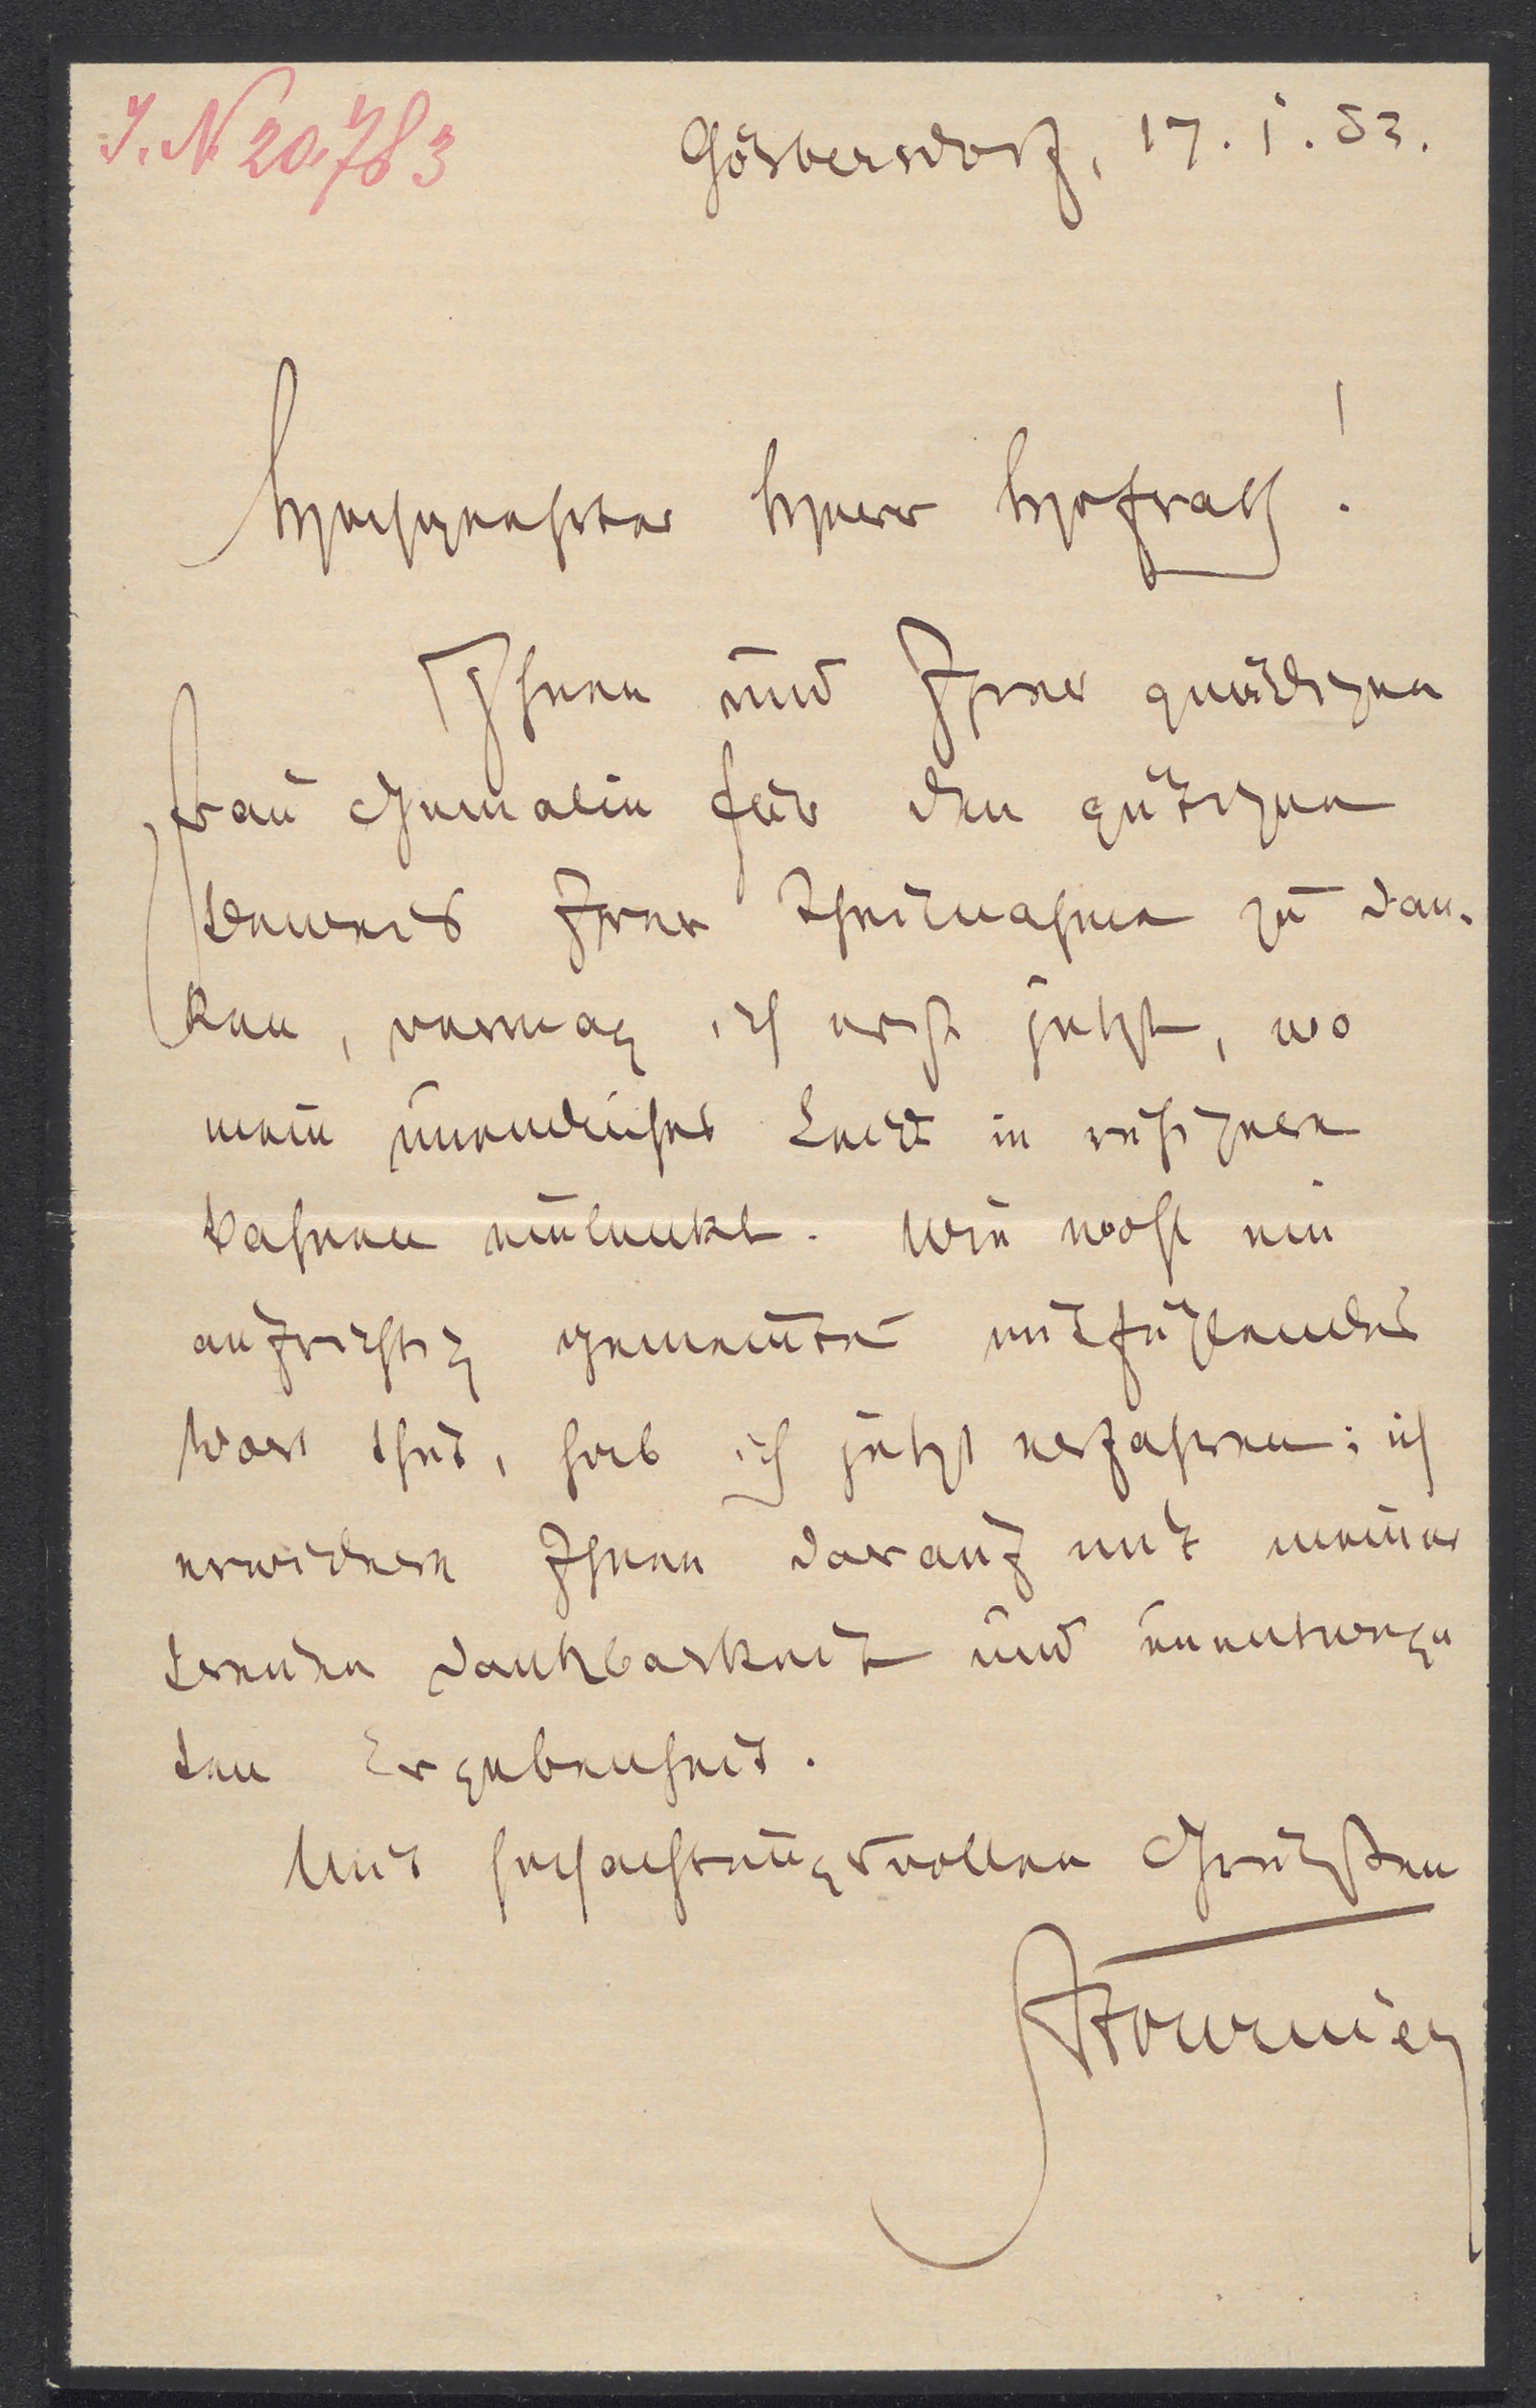 J. N 20.783
Görbersdorf, 17. I. 83.
Hochgeehrter Herr Hofrath!
Ihnen und Ihrer gnädigen
Frau Gemalin für den gütigen
Beweis Ihrer Theilnahme zu dan-
ken, vermag ich erst jetzt, wo
mein unendliches Leid in ruhigere
Bahnen einlenkt. Wie wohl ein
aufrichtig gemeintes mitfühlendes
Wort thut, hab ich jetzt erfahren; ich
erwidere Ihnen darauf mit meiner
treuen Dankbarkeit und unentweg-
ten Ergebenheit.
Mit hochachtungsvollen Grüßen
Fournier